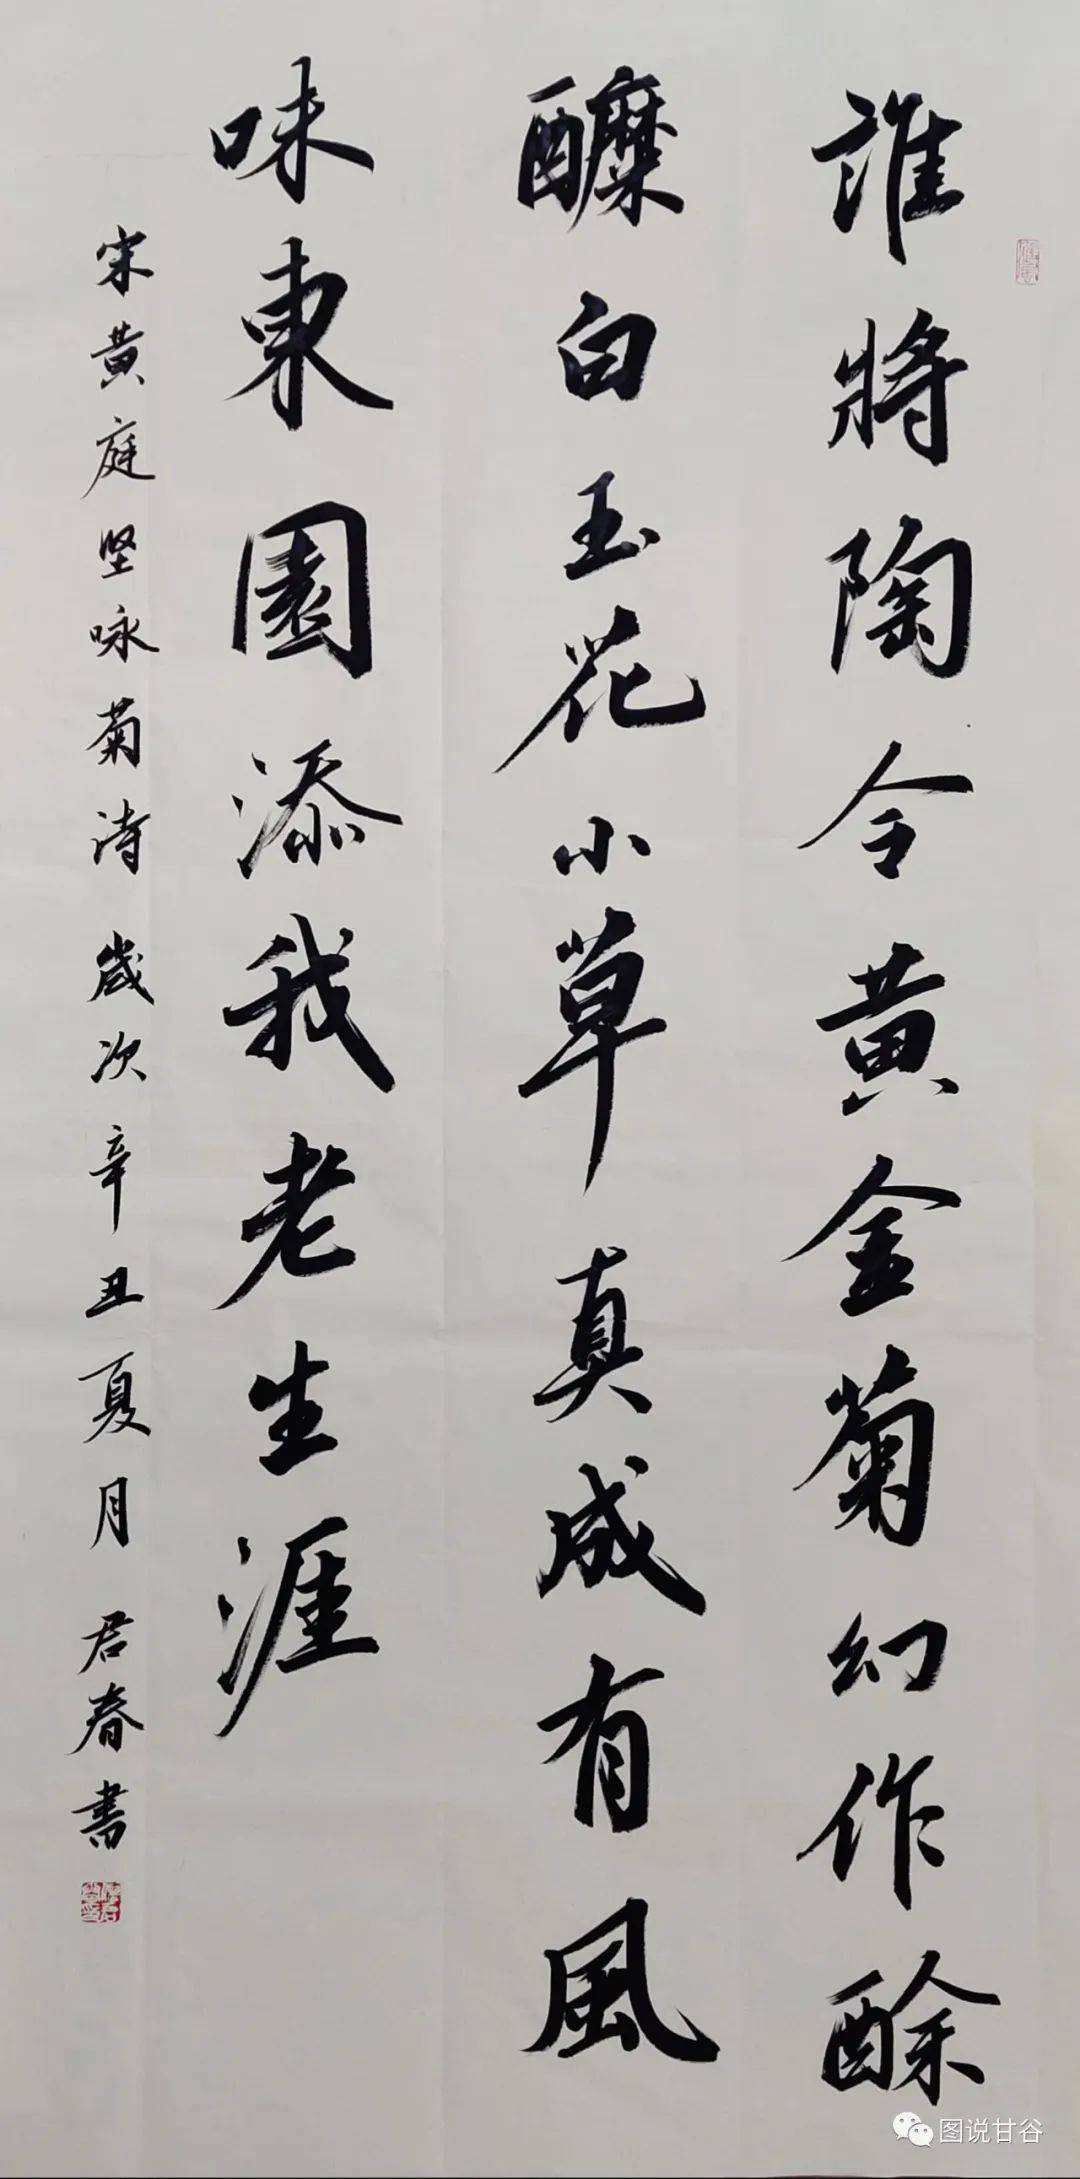 誰將陶令黄金菊幻作酴
醿白玉花小草真成有風
味東園添我老生涯
宋黄庭坚咏菊诗 歲次辛丑夏月 君春書
图说甘谷